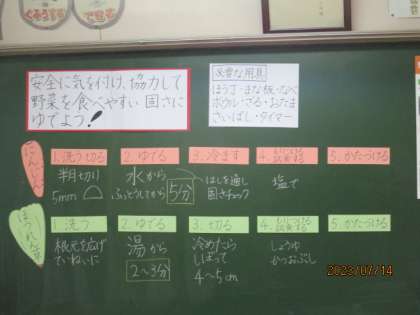 安全に気を付け、協力して
野菜を食べやすい固さに
ゆでよう!
必要な用具
ほう丁・まな板・なべ
ボウル・ざる・おたま
さいばし・タイマー
にんじん
1. 洗う切る
2. ゆでる
3. 冷ます
5. かたづける
半月切り
5mm
水から
ふっとうしてから
5分
はしを通し
固さチェック
塩で
ほうれん草
1. 洗う
2. ゆでる
3. 切る
5. かたづける
根元を広げ
ていねいに
湯から
2~3分
冷めたら
しぼって
4~5cm
しょうゆ
かつおぶし
2023/07/14